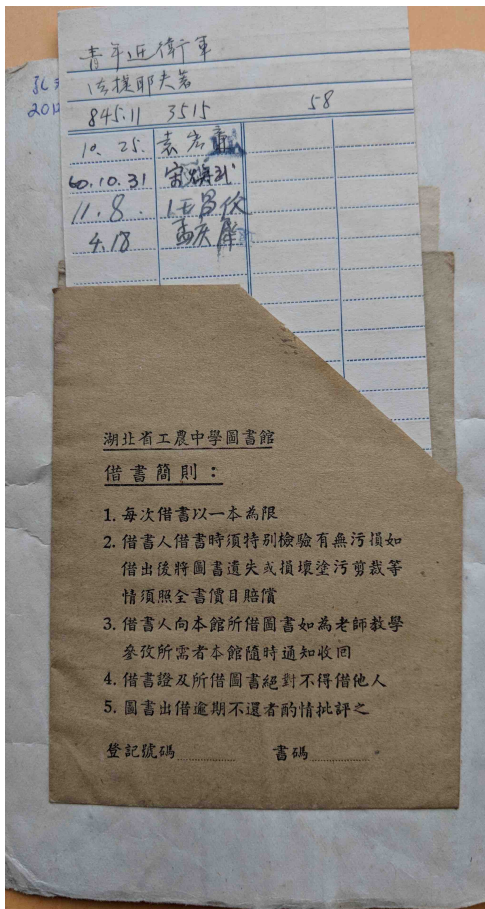 青年近衛軍
法捷耶夫著
845.11 3515 58
10. 25. 袁
60.10.31 宋煥武
11. 8. 王昌
4.18 孟庆
湖北省工農中學圖書館
借書簡則：
1. 每次借書以一本為限
2. 借書人借書時須特別檢驗有無污損如
借出後將圖書遺失或損壞塗污剪裁等
情須照全書價目賠償
3. 借書人向本館所借圖書如為老師教學
參攷所需者本館隨時通知收回
4. 借書證及所借圖書絕對不得借他人
5. 圖書出借逾期不還者酌情批評之
登記號碼 書碼